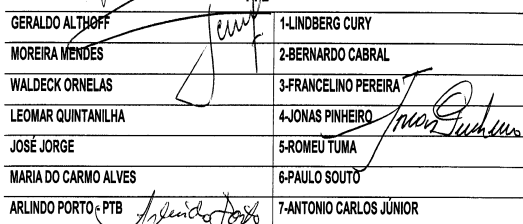 GERALDO ALTHOFF 1-LINDBERG CURY
MOREIRA MENDES 2-BERNARDO CABRAL
WALDECK ORNELAS 3-FRANCELINO PEREIRA
LEOMAR QUINTANILHA 4-JONAS PINHEIRO Jonas Pinheiro
JOSÉ JORGE 5-ROMEU TUMA
MARIA DO CARMO ALVES 6-PAULO SOUTO
ARLINDO PORTO - PTB Arlindo Porto 7-ANTONIO CARLOS JÚNIOR